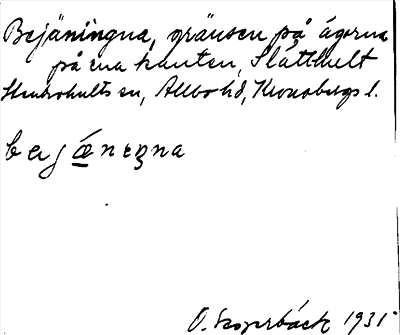 Bejäningna, gränsen på ägorna
på ena kanten, Slätthult
Stenbrohults sn, Allbo hd, Kronobergs l.
bejæneŋna
1931